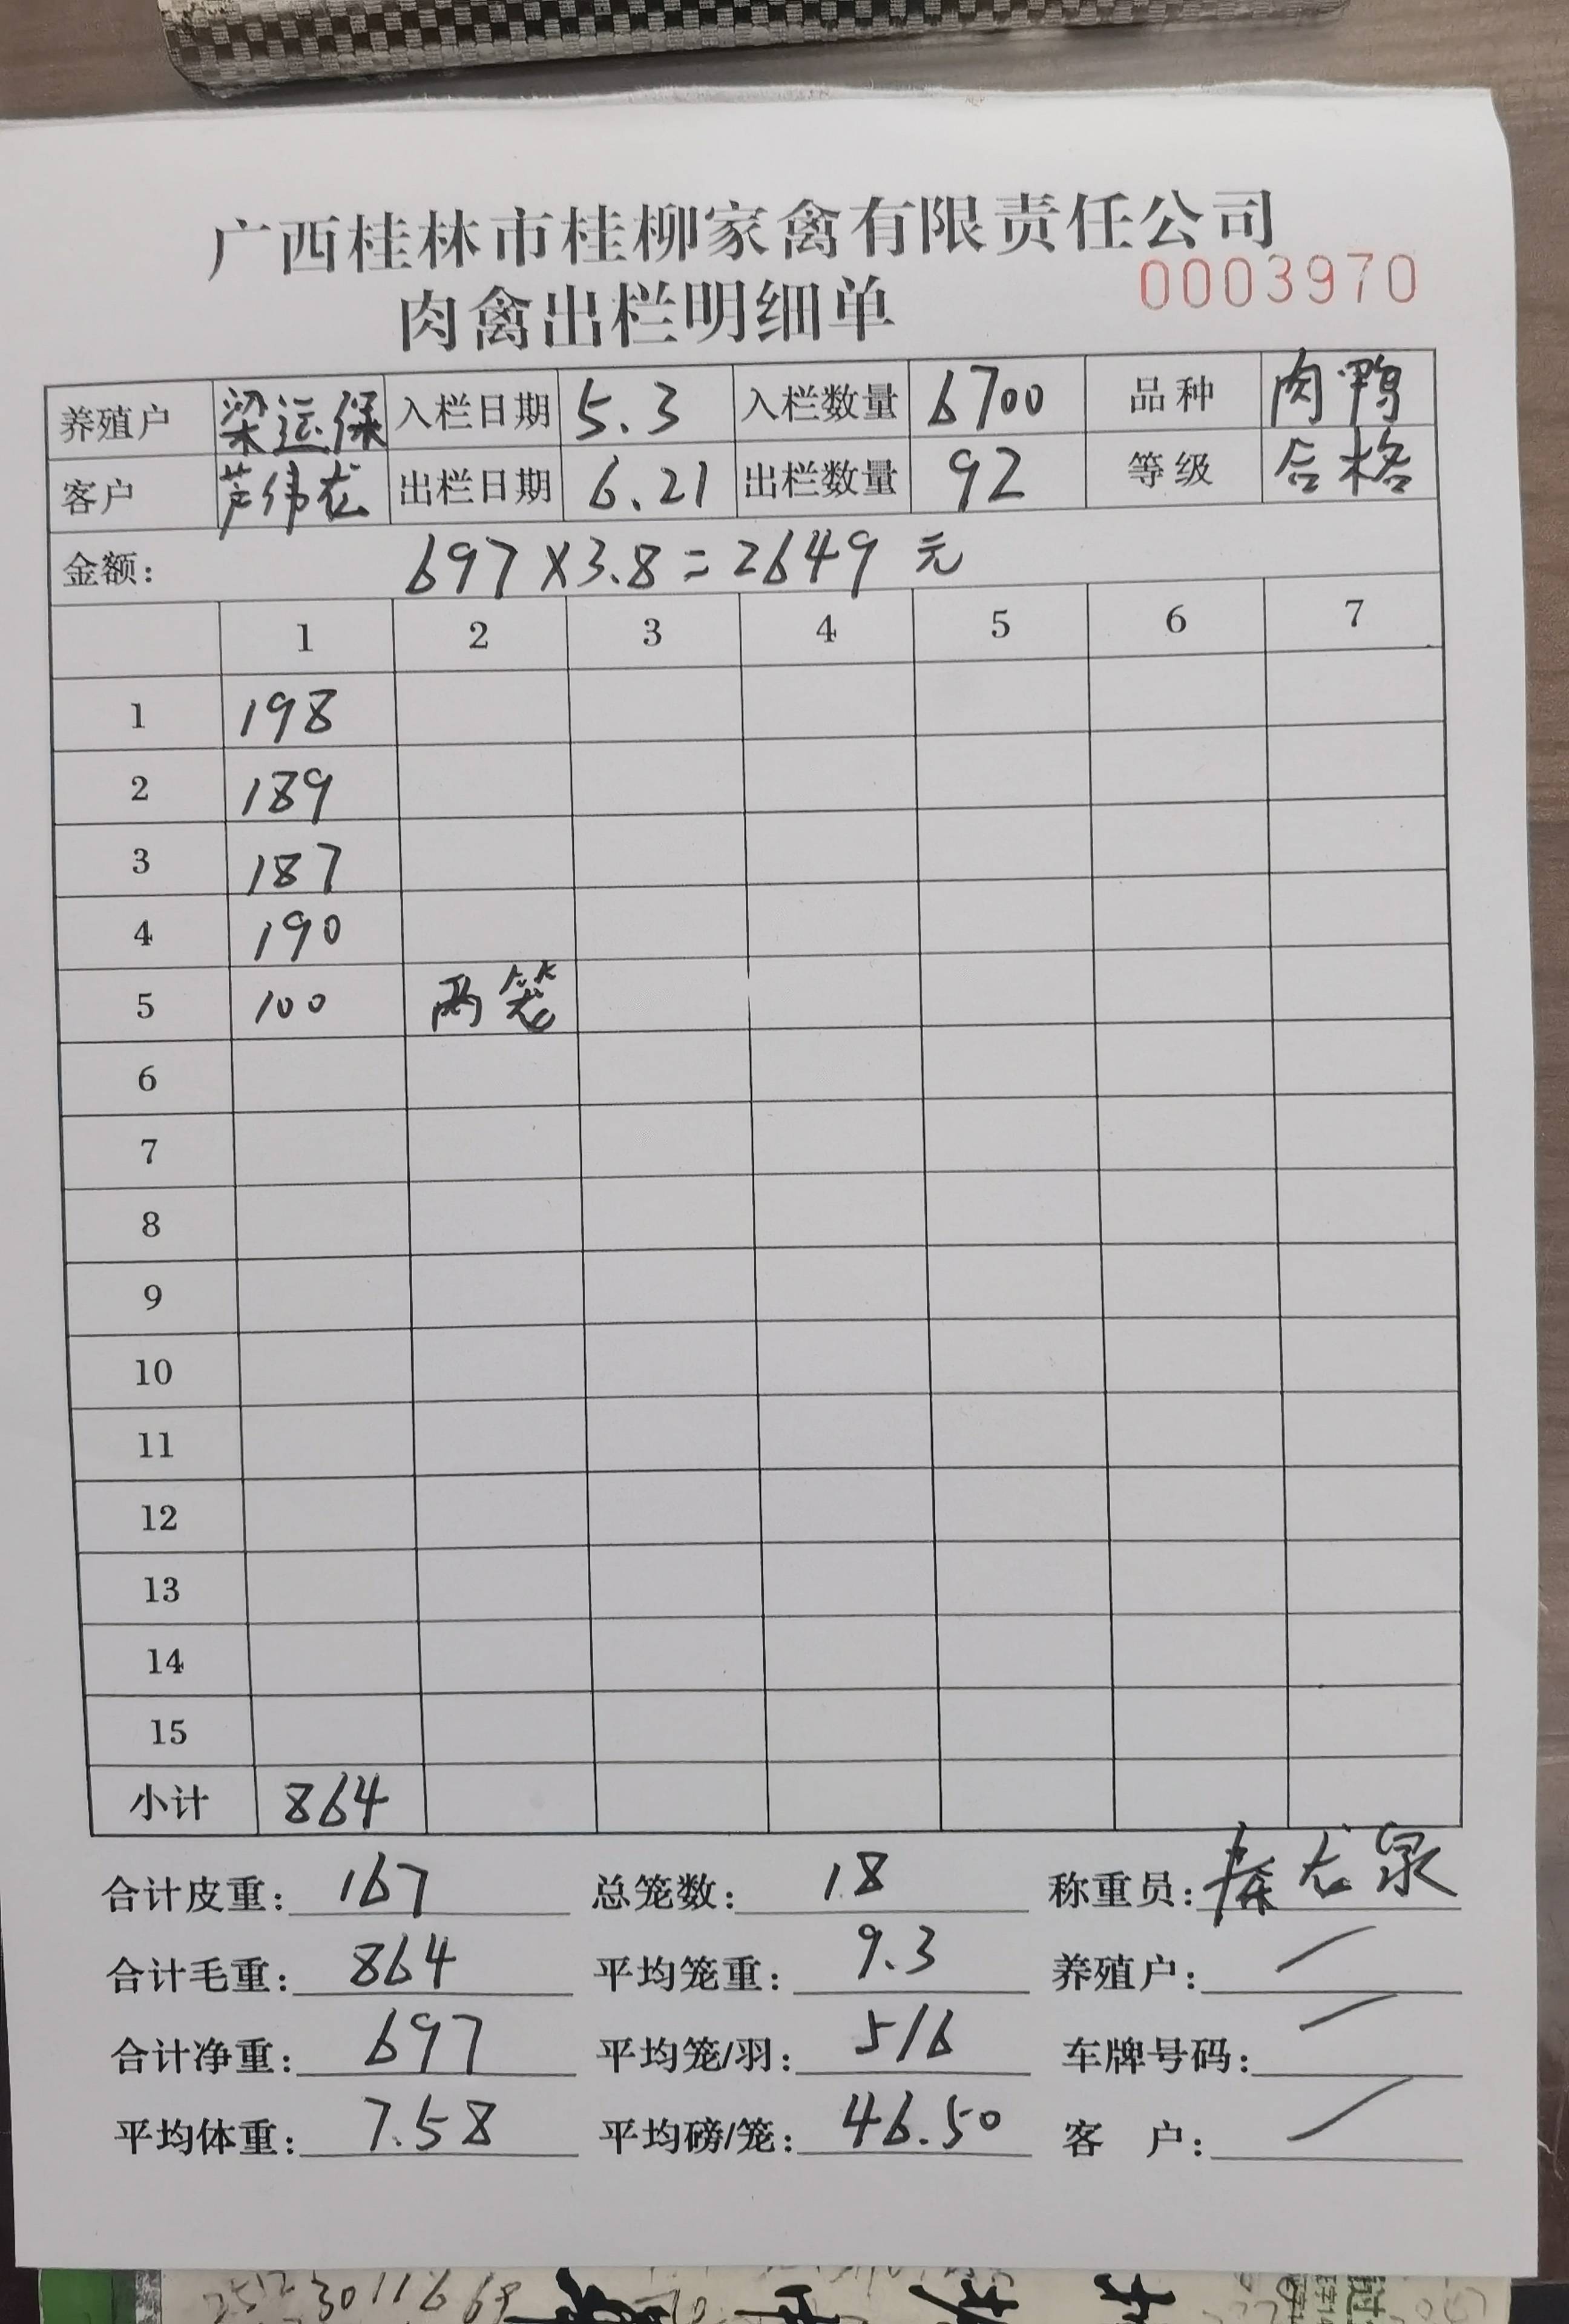 广西桂林市桂柳家禽有限责任公司
肉禽出栏明细单 0003970
养殖户 梁运保 入栏日期 5.3 入栏数量 6700 品种 肉鸭
客户 芦伟龙 出栏日期 6.21 出栏数量 92 等级 合格
金额: 697×3.8=2649 元
1 2 3 4 5 6 7
1 198
2 189
3 187
4 190
5 100 两笼
6
7
8
9
10
11
12
13
14
15
小计 864
合计皮重: 167 总笼数: 18 称重员: 龙泉
合计毛重: 864 平均笼重: 9.3 养殖户: /
合计净重: 697 平均笼/羽: 5/6 车牌号码: /
平均体重: 7.58 平均磅/笼: 46.50 客 户: /